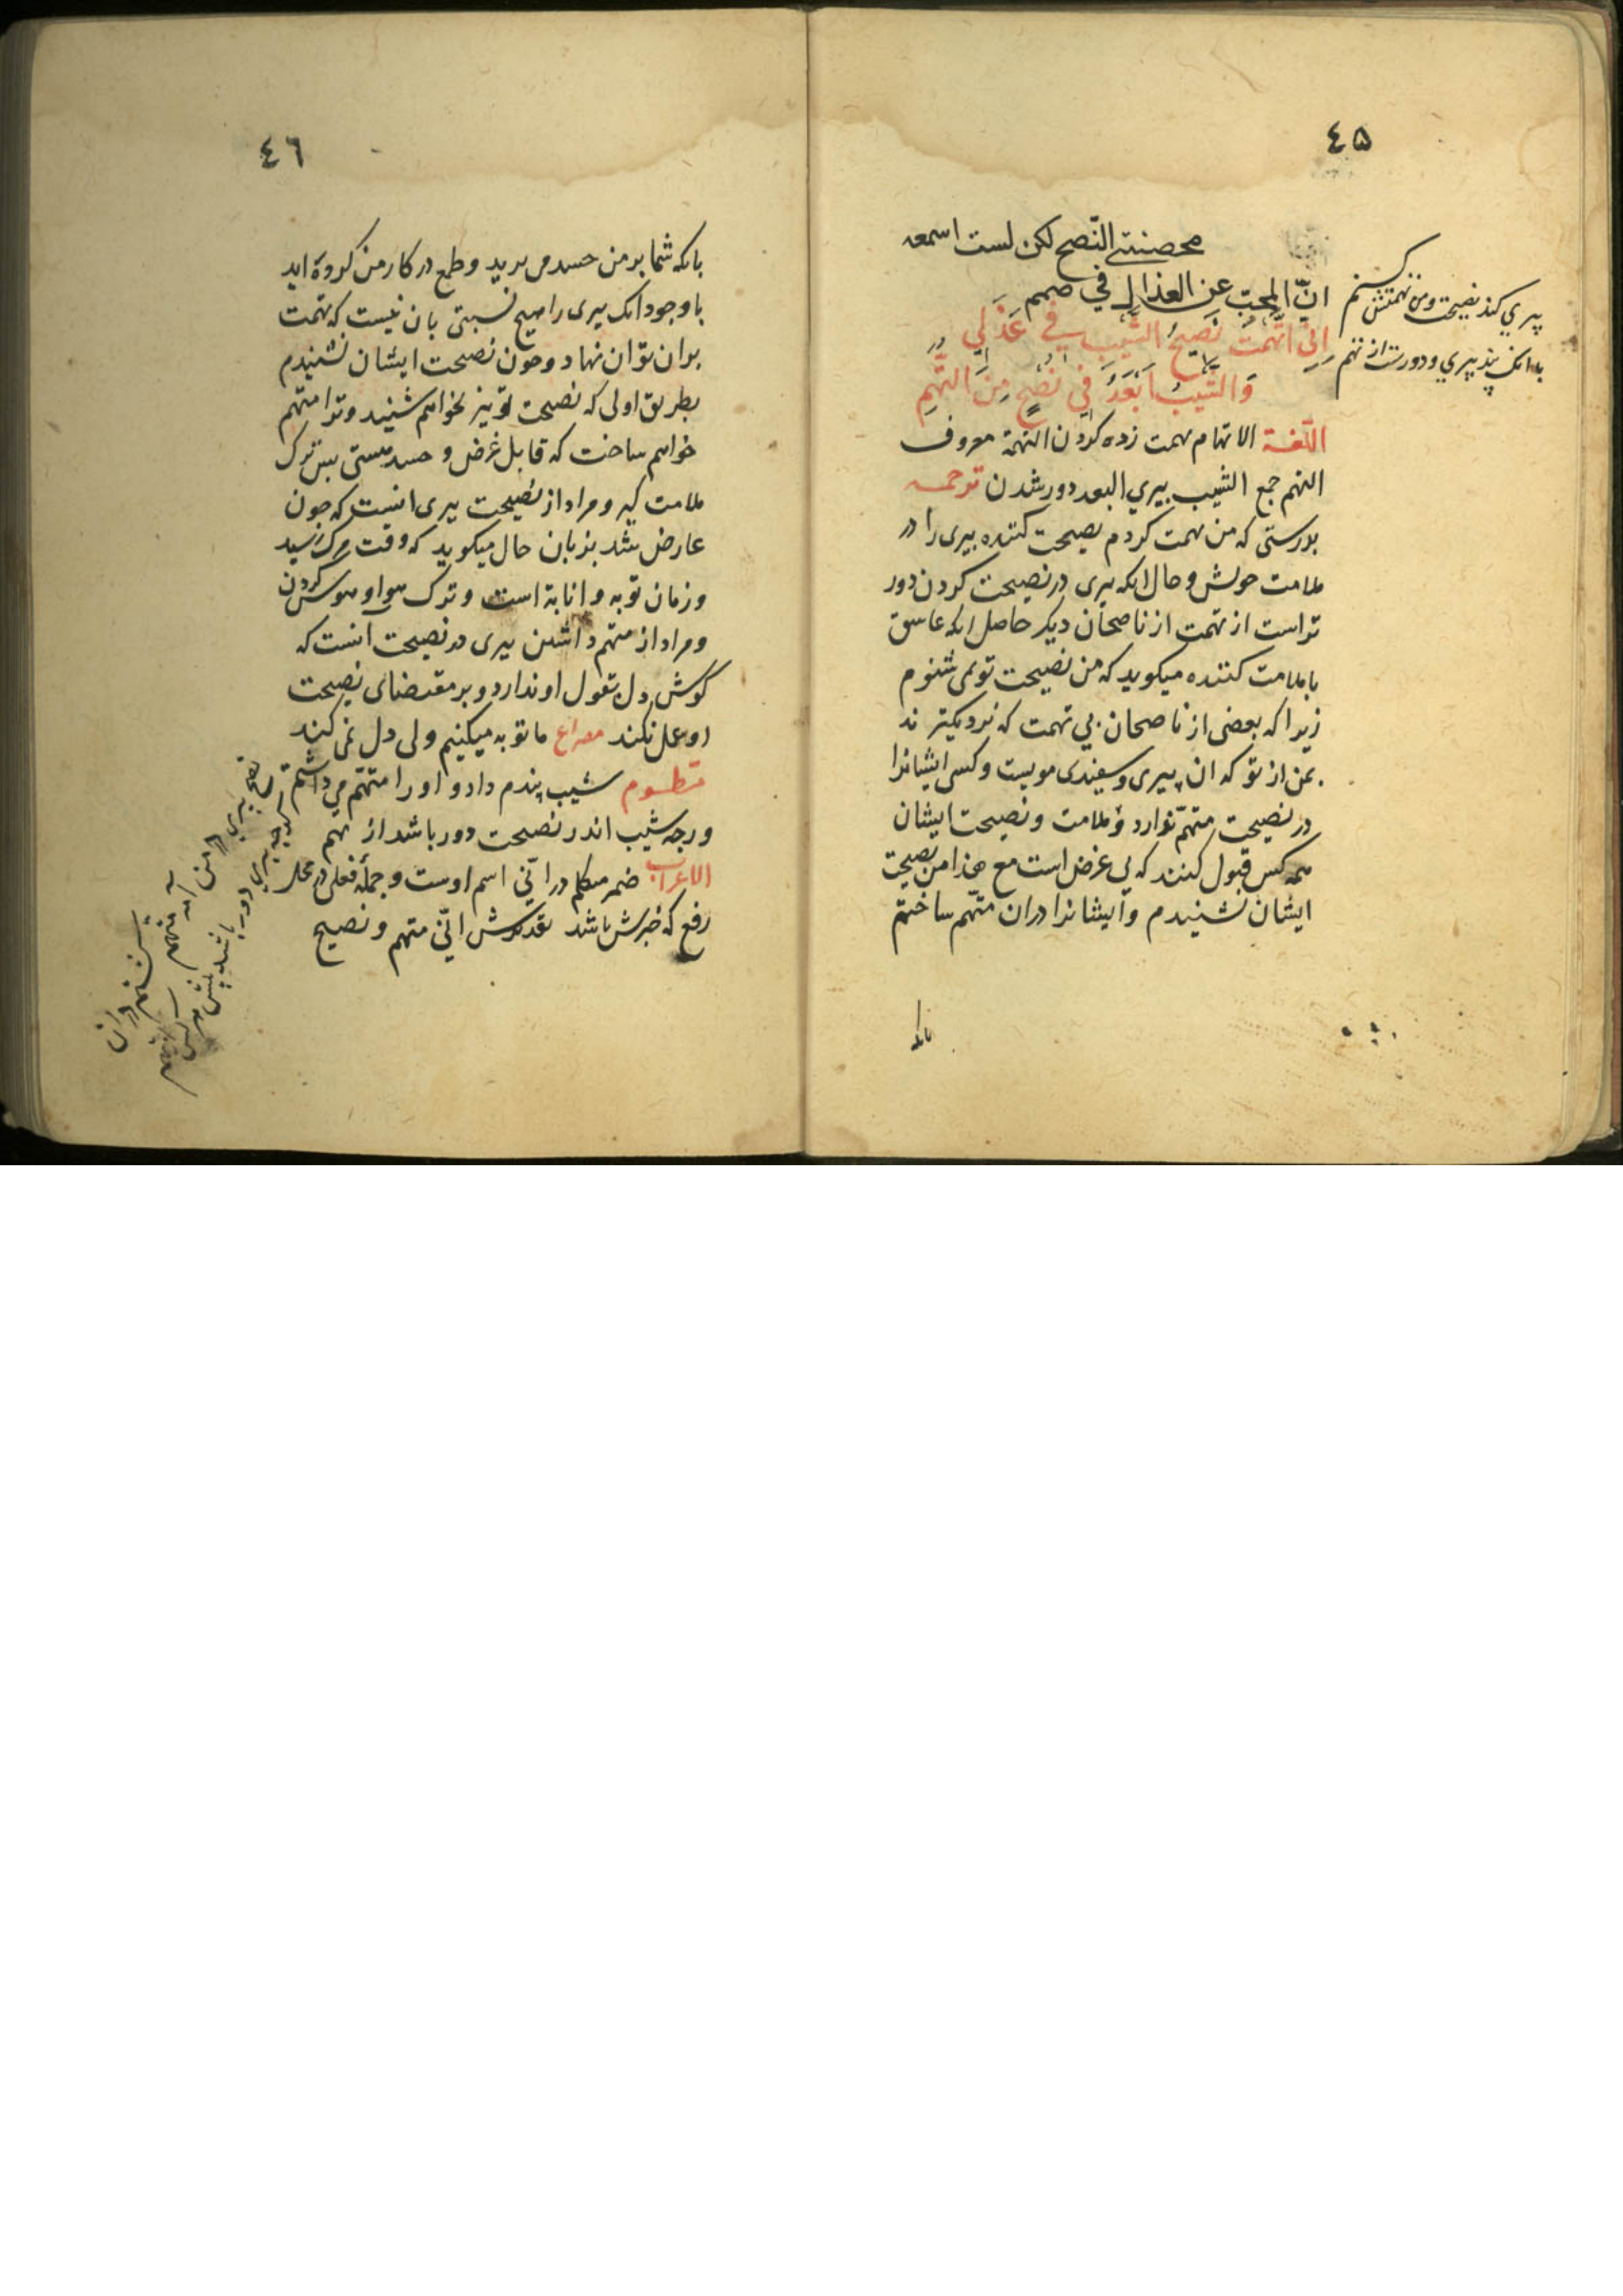 ٤٥
محضتني النّصح لكن لست اسمعه
انّ المحبّ عن العذال في صمم
اِنّی اتَّهَمْتُ نَصیحَ الشَّیبِ فی عَذَلِی
وَالشَّیبُ اَبْعَدُ فِی نُصْحٍ مِنَ التُّهَمِ
پیري کند نصیحت ومن تهمتش کنم
با انک پند پیري و دورست از تهم
اللّغة الاتهام تهمت زده کردن التهمة معروف
التهم جمع الشیب پیري البعد دور شدن ترجمه
بدرستی که من تهمت کردم نصیحت کننده پیری را در
ملامت خویش و حال انکه پیری در نصیحت کردن دور
تراست از تهمت از ناصحان دیکر حاصل انکه عاشق
با ملامت کننده میکوید که من نصیحت تو نمی شنوم
زیرا که بعضی از ناصحان بي تهمت که نزدیکتر ند
بمن از تو که ان پیری و سفیدی مویست وکسی ایشانرا
در نصیحت متهمّ ندارد و ملامت و نصیحت ایشان
همه کس قبول کنند که بی غرض است مع هذا من نصیحت
ایشان نشنیدم و ایشانرا دران متّهم ساختم
بانکه
٤٦
بانکه شما بر من حسد می برید و طمع در کار من کرده اید
با وجود انک پیری را هیچ نسبتی بان نیست که تهمت
بران توان نهاد و چون نصیحت ایشان نشنیدم
بطریق اولی که نصیحت تو نیز نخواهم شنید و ترا متهم
خواهم ساخت که قابل غرض و حسد هستی پس ترک
ملامت کیر و مراد از نصیحت پیری انست که چون
عارض شد بزبان حال میکوید که وقت مرک رسید
و زمان توبه و انابة است و ترک هوا و هوس کردن
و مراد از متهم داشتن پیری در نصیحت انست که
کوش دل بقول او ندارد و بر مقتضای نصیحت
او عمل نکند مصراع ما توبه میکنیم ولی دل نمی کند
منظوم شیب پندم داد و او را متّهم می داشتم
ورچه شیب اندر نصیحت دور باشد از تهم
الاعراب ضمیر متکلم در انّي اسم اوست و جملهٔ فعلی در محل
رفع که خبرش باشد تقدیرش انّي متهم و نصیح
نصح پیري در من
کرچه پیري دور باشد